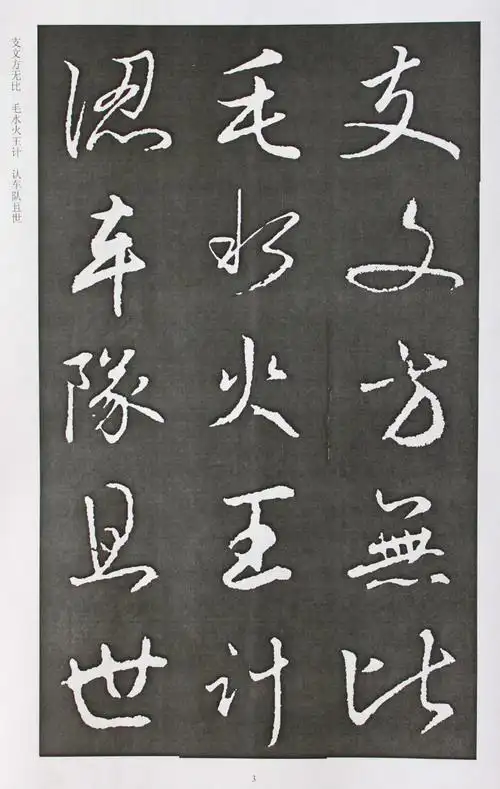 支文方無比
毛水火王计
認车隊且世
支文方无比　毛水火王计　认车队且世
3